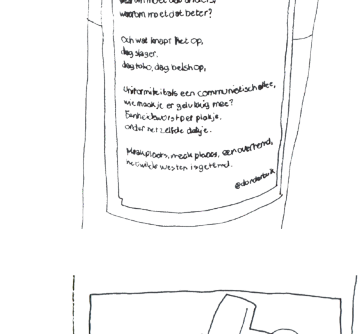 waarom moet dat beter?

Och wat knapt het op,
dag slager.
dag toko, dag belshop,

Uniformiteit als een communistisch atlee,
wie maak je er gelukkig mee?
Eenheidsworst per plakje,
onder hetzelfde dakje.

Maak plaats, maak plaats, overhend,
het wilde westen is getemd.
@dondertuik